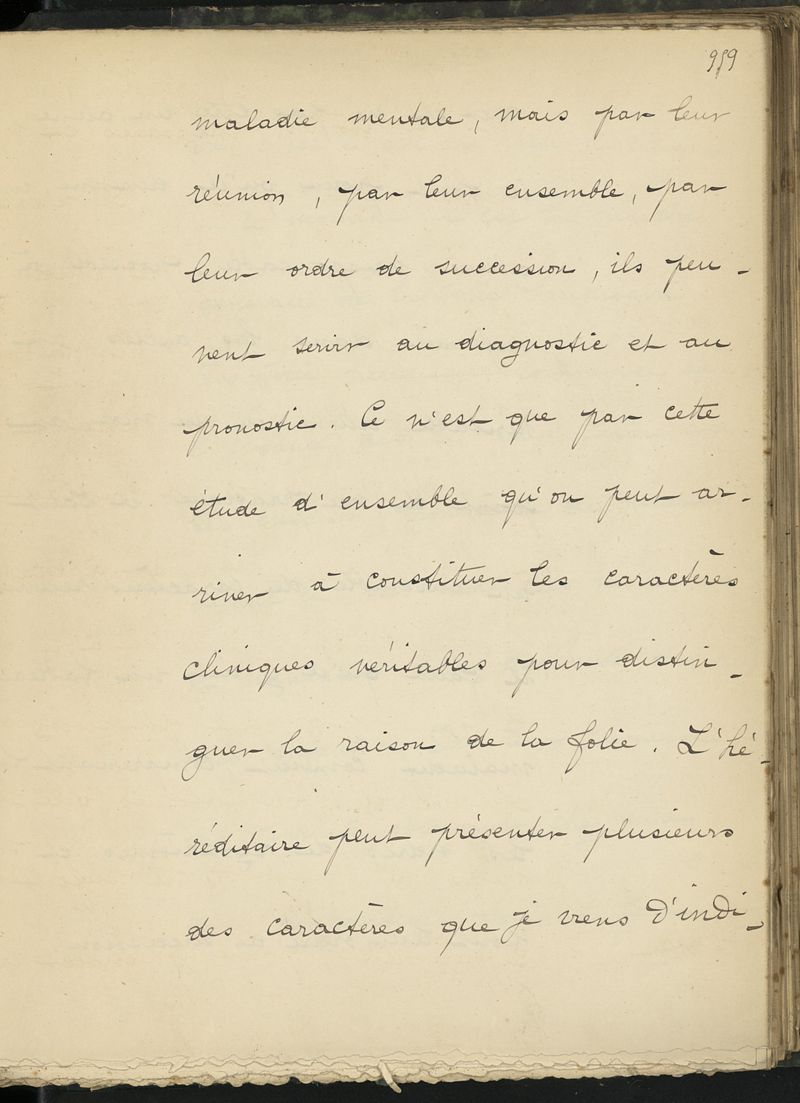 959
maladie mentale, mais par leur
réunion, par leur ensemble, par
leur ordre de succession, ils peu-
vent servir au diagnostic et au
pronostic. Ce n'est que par cette
étude d'ensemble qu'on peut ar-
river à constituer les caractères
cliniques véritables pour distin-
guer la raison de la folie. L'hé-
réditaire peut présenter plusieurs
des caractères que je viens d'indi-